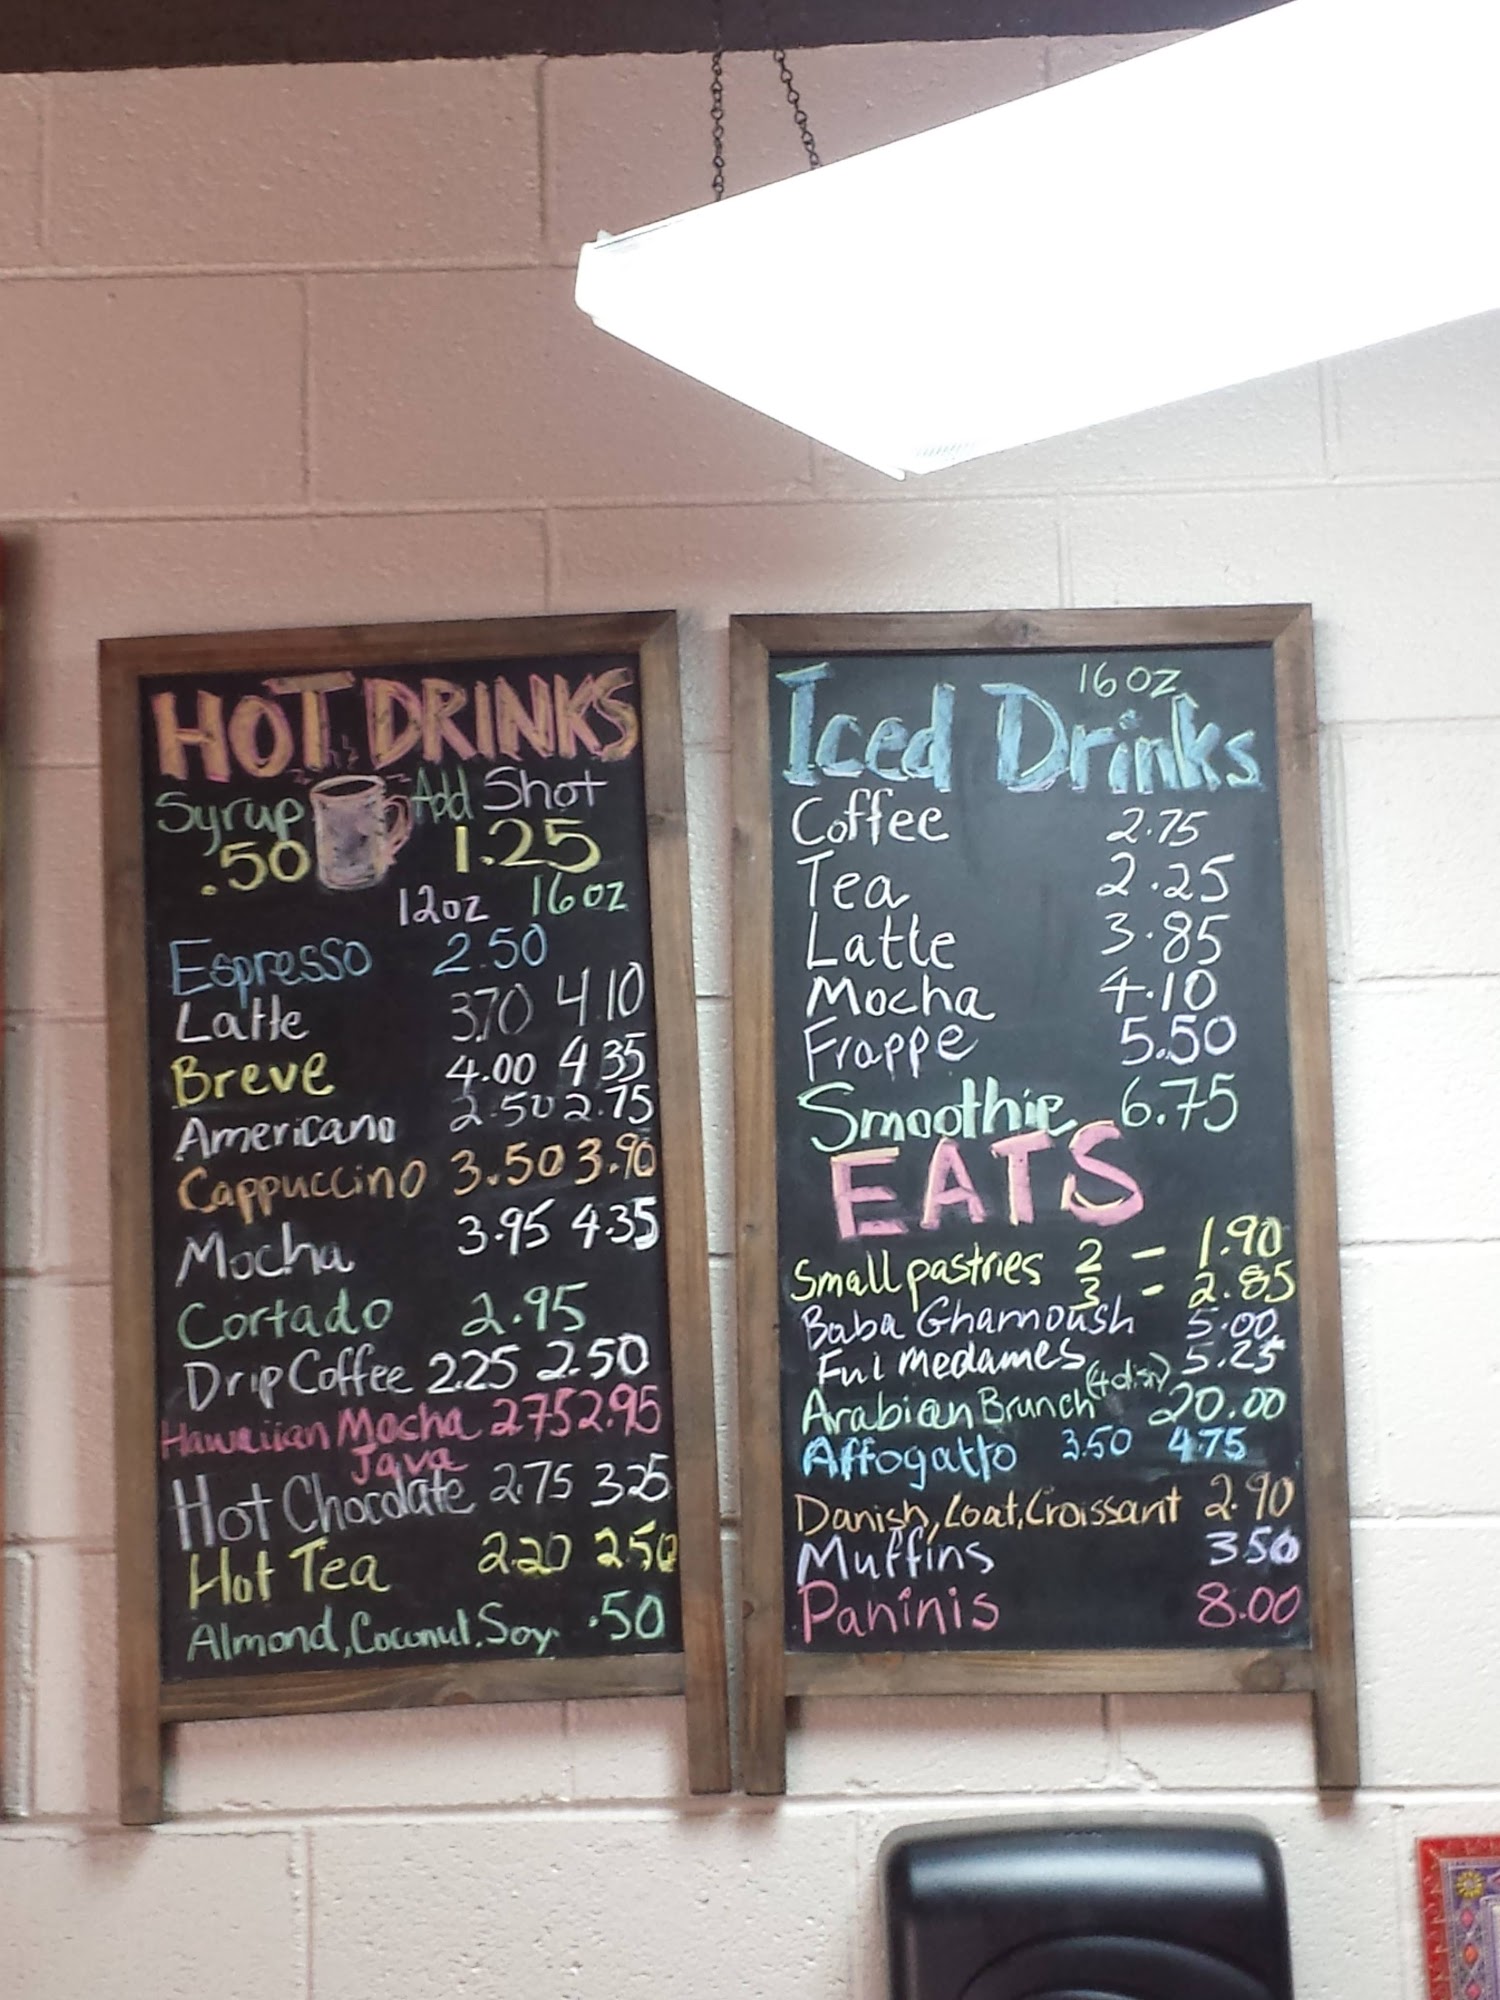 HOT DRINKS
Syrup Add Shot
.50 1.25
12oz 16oz
Espresso 2.50
Latte 3.70 4.10
Breve 4.00 4 35
Americano 2.50 2.75
Cappuccino 3.50 3.90
Mocha 3.95 4.35
Cortado 2.95
Drip Coffee 2.25 2.50
Hawaiian Mocha 2.75 2.95
Java
Hot Chocolate 2.75 3.25
Hot Tea 2.20 2.50
Almond, Coconut, Soy .50
16 oz
Iced Drinks
Coffee 2.75
Tea 2.25
Latte 3.85
Mocha 4.10
Frappe 5.50
Smoothie 6.75
EATS
Small pastries 2 - 1.90
3 - 2.85
Baba Ghanoush 5.00
Ful medames 5.25
Arabian Brunch 20.00
Affogatto 3.50 4.75
Danish, Loaf, Croissant 2.90
Muffins 3.50
Paninis 8.00